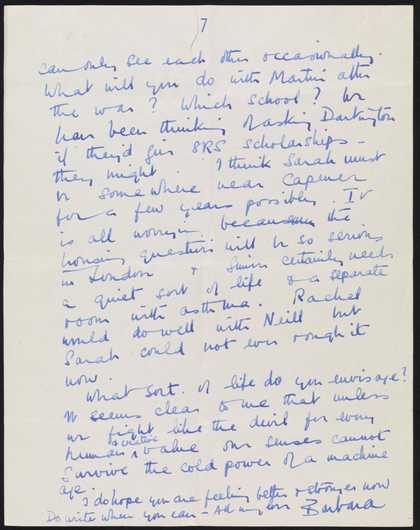 7
can only see each other occasionally.
What will you do with Martin after
the war? Which school? We
have been thinking of asking Dartington
if they'd give SRS scholarships –
they might. I think Sarah must
be somewhere near Capener
for a few years possibly. It
is all worrying because the
housing question will be so serious
in London & Simon certainly needs
a quiet sort of life & a separate
room with asthma. Rachel
would do well with Neill but
Sarah could not ever rough it
now.
What sort of life do you envisage?
It seems clear to me that unless
we fight like the devil for every
human & creative value our senses cannot
survive the cold power of a machine
age.
I do hope you are feeling better & stronger now
Do write when you can – All my love Barbara